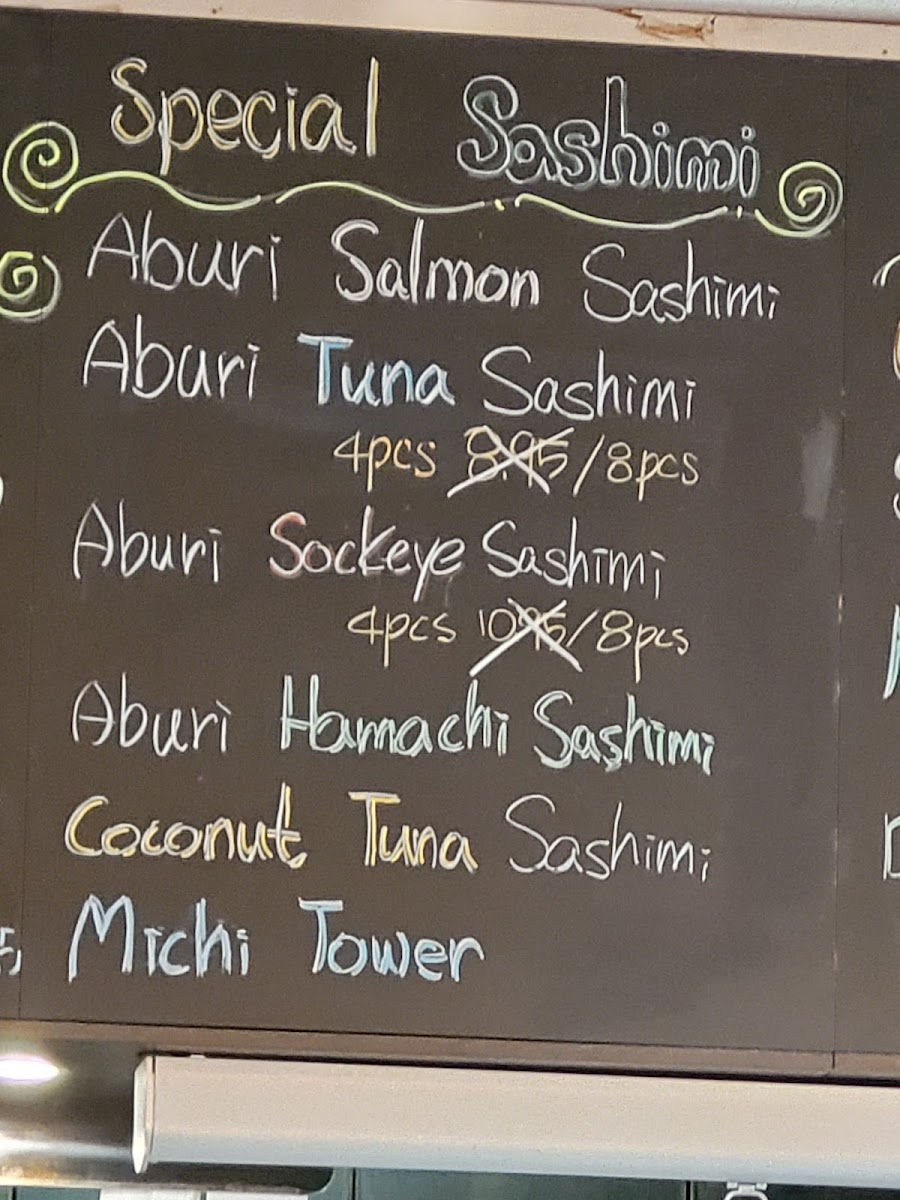 Special Sashimi
Aburi Salmon Sashimi
Aburi Tuna Sashimi
4pcs 8.95/8pcs
Aburi Sockeye Sashimi
4pcs 10.95/8pcs
Aburi Hamachi Sashimi
Coconut Tuna Sashimi
Michi Tower